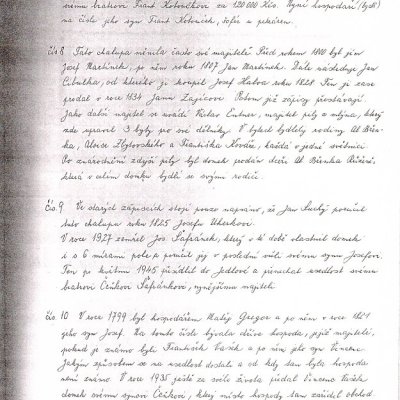 svému bratrovi Frant. Kotoučkovi za 120.000 Kčs. Nyní hospodaří (bydlí)
na čísle jeho syn Frant. Kotouček, šofér a pekárem.
čís. 8. Tato chalupa měnila často své majitelé. Před rokem 1800 byl jím
Josef Martinek, po něm roku 1807 Jan Martinek. Dále následuje Jan
Cibulka, od kterého ji koupil Josef Haloa roku 1828. Ten ji zase
prodal v roce 1834 Janu Zajícovi. Potom již zápisy přestávají.
Jako další majitel se uvádí Václav Entner, majitel pily a mlýna, který
zde upravil 3 byty pro své dělníky. V bytech bydlely rodiny Al. Bienka,
Aloise Zbytovského a Františka Kováře, každá v jedné světnici.
Po znárodnění zdejší pily byl domek prodán dceři Al. Bienka Růženě,
která v celém domku bydlí se svými rodiči.
čís. 9. Ve starých zápisech stojí pouze napsáno, že Jan Suchý poručil
tuto chalupu roku 1825 Josefu Uherkovi.
V roce 1927 zemřel Jos. Šafránek, který v té době vlastnil domek
i s 6 mírami pole a poručil jej v poslední vůli svému synu Josefovi.
Ten po květnu 1945 přesídlil do Jedlové a přenechal usedlost svému
bratrovi Čeňkovi Šafránkovi, nynějšímu majiteli.
čís. 10. V roce 1799 byl hospodářem Matěj Gregor a po něm v roce 1821
jeho syn Josef. Na tomto čísle bývala dříve hospoda, jejíž majiteli,
pokud je známo byli František Vašek a po něm jeho syn Vincenc.
Jakým způsobem se na usedlost dostali a od kdy tam byla hospoda
není známo. V roce 1935 ještě za svého života předal Vincenc Vašek
domek svému synovi Čeňkovi, který místo hospody tam zařídil obchod